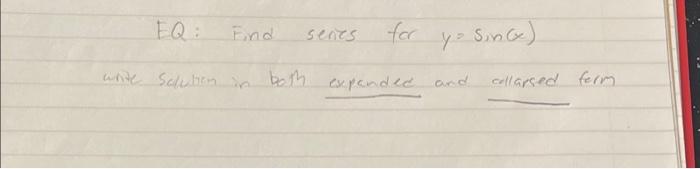 EQ: Find series for y = Sin(x)
write solution in both expanded and collapsed form